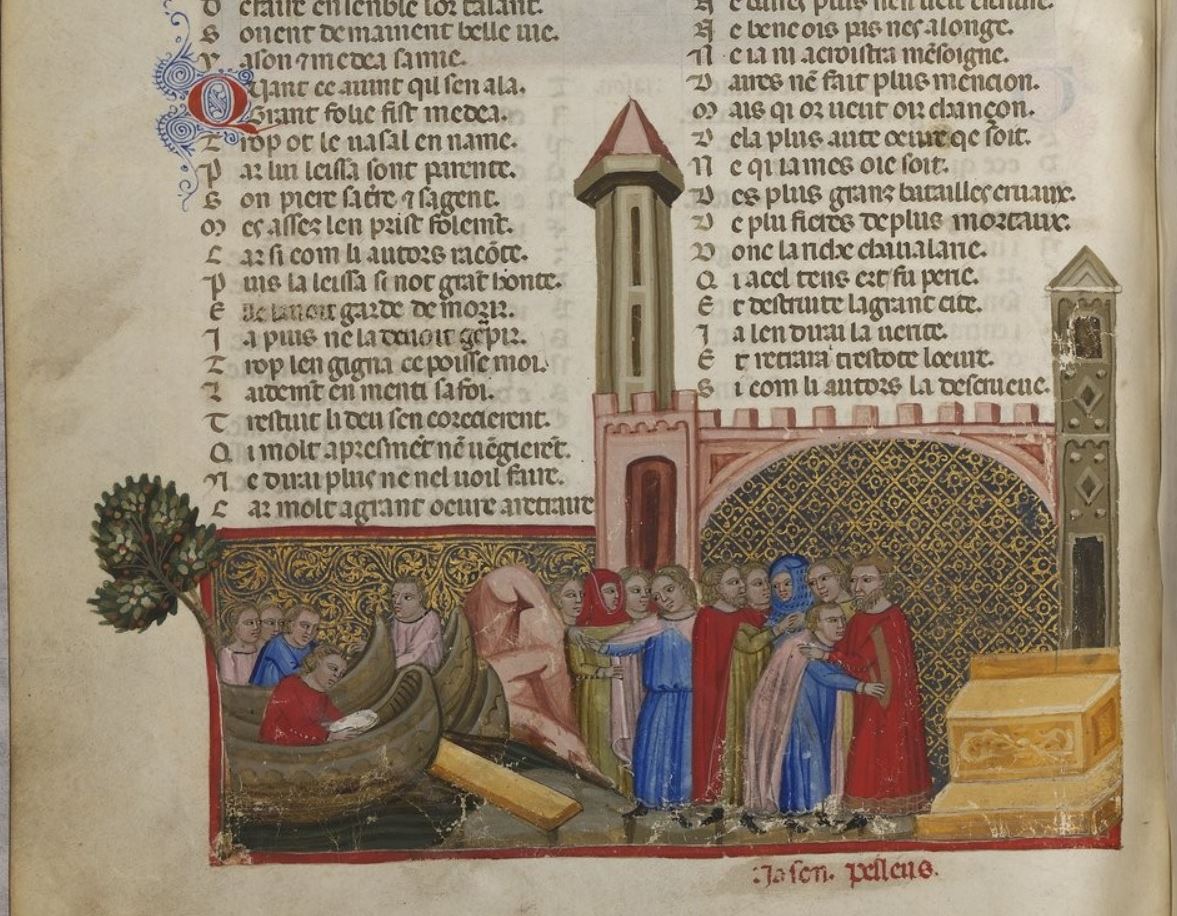 D efaire ensenble lor talant.
S ouent demainent belle uie.
Y ason ⁊ medea samie.
Quant ce auint qil sen ala.
Grant folie fist medea.
T rop ot le uasal en name.
P ar lui leissa sont parente.
S on piere sa cite ⁊ sa gent.
M es assez len prist folemt̄.
C ar si com li autors racōte.
P uis la leissa si not grāt honte.
E lle lauoit garde de morir.
J a puis ne la deuoit gēpir.
T rop len gigna ce poisse moi.
L aidemt̄ en menti sa foi.
T restuit li deu sen corecierent.
Q i molt apresmēt nē uēgierēt.
N e dirai plus ne nel uoil faire.
C ar molt a grant oeure a retraire
plus nen
A e beneois pas nes alonge.
N e ia ni acroistra mēsoigne.
D aires nē fait plus mencion.
M ais qi or ueut oir chançon.
D ela plus aute oeure qe soit.
N e qi iames oie soit.
D es plus granz batailles cruaux.
D e plu fieres de plus mortaux.
D onc la riche chiualarie.
Q i a cel tens ert fu perie.
E t destruite la grant cite.
J a len dirai la uerite.
E t retrara trestote loeure.
S i com li autors la descueure.
Jason. pelleus.